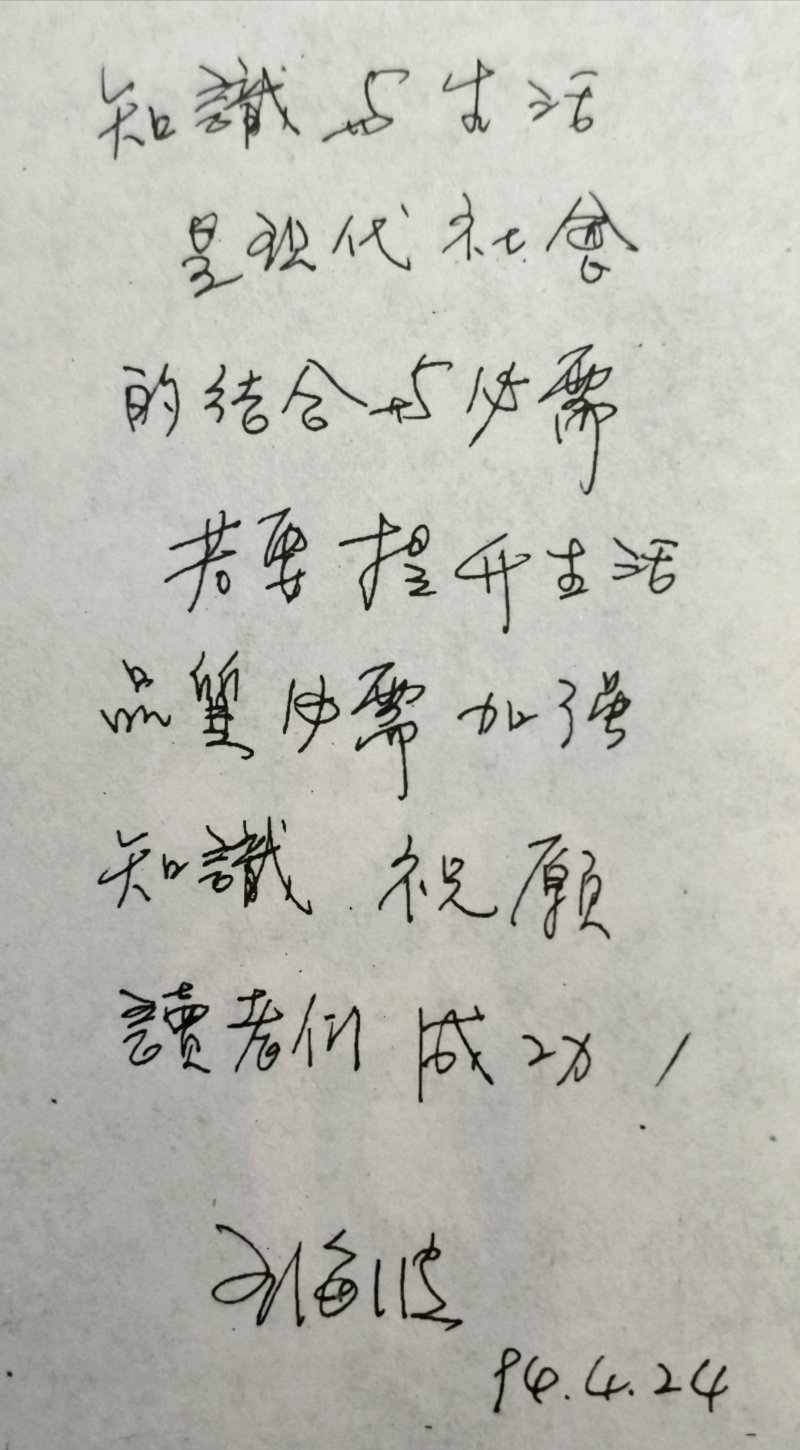 知識与生活
是现代社會
的结合与必需
若要提升生活
品質必需加强
知識 祝願
讀者们成功！
刘海波
94.4.24